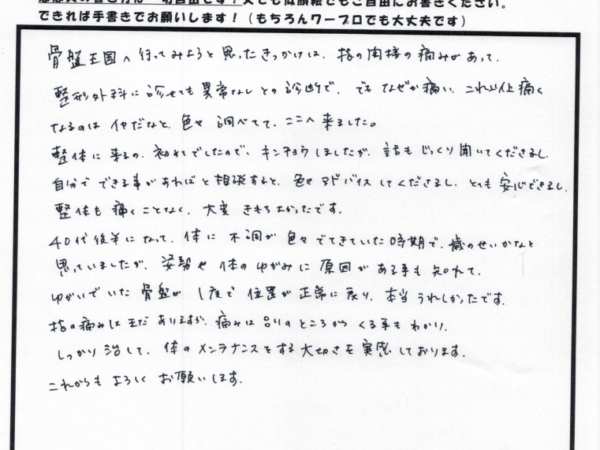 できれば手書きでお願いします！（もちろんワープロでも大丈夫です）
骨盤王国へ行ってみようと思ったきっかけは、指の関節の痛みがあって、
整形外科に診せても異常なしとの診断で、でもなぜか痛い、これ以上痛く
なるのはイヤだなと、色々調べてて、ここへ来ました。
整体に来るの、初めてでしたので、キンチョウしましたが、話もじっくり聞いてくださるし、
自分でできる事があればと相談すると、色々アドバイスしてくださるし、とても安心できるし、
整体も痛くことなく、大変きもちよかったです。
40代後半になって、体に不調が色々でてきていた時期で、歳のせいかなと
思っていましたが、姿勢や体のゆがみに原因がある事も知れて、
ゆがいでいた骨盤が1度で位置が正常に戻り、本当うれしかったです。
指の痛みはまだありますが、痛みは別のところからくる事もわかり、
しっかり治して、体のメンテナンスをする大切さを実感しております。
これからもよろしくお願いします。